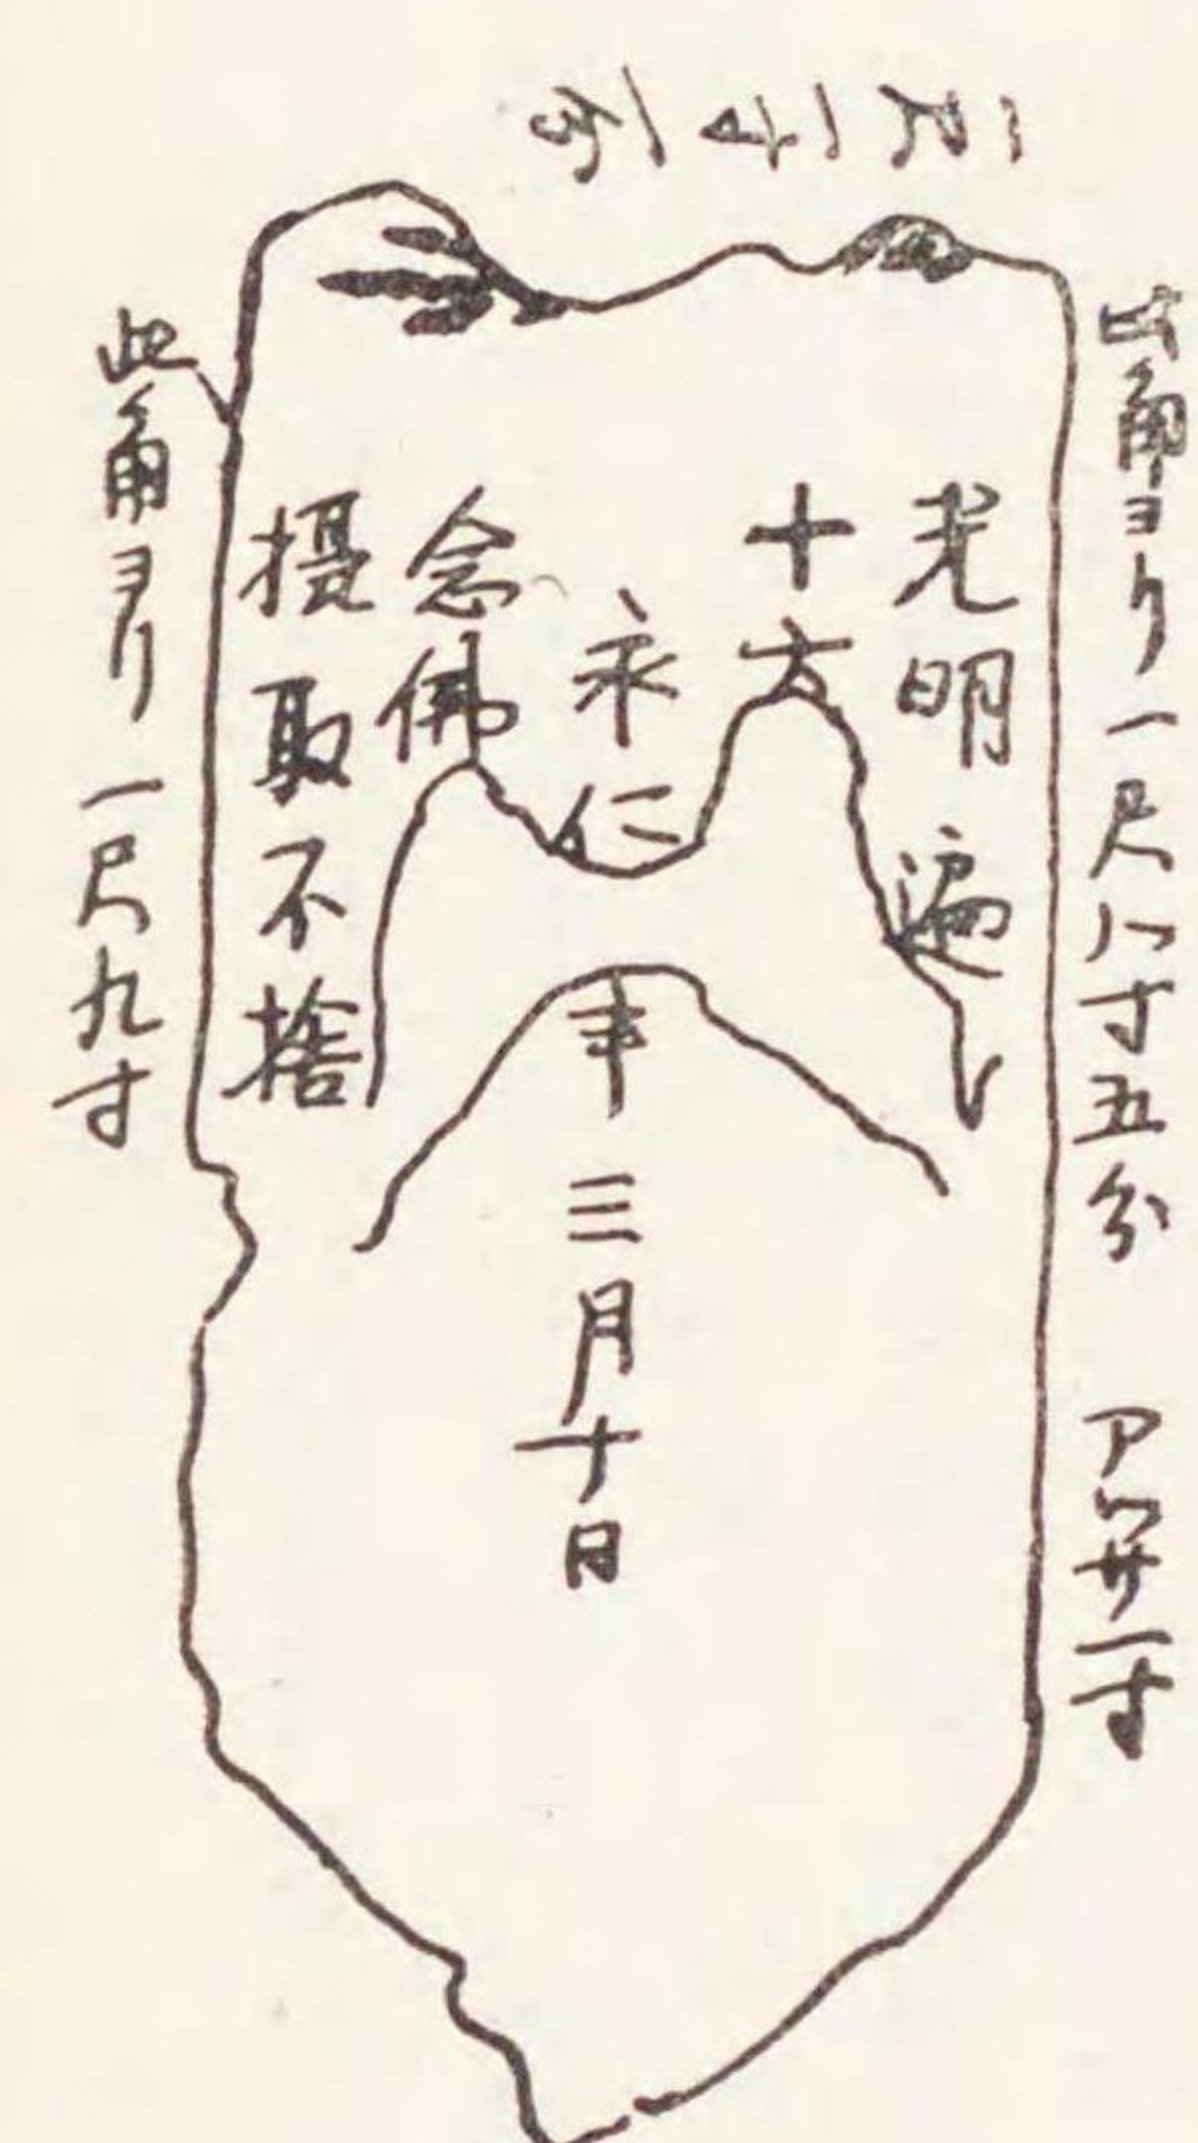 一尺一寸一分
此角ヨリ一尺八寸五分 アツサ一寸
光明遍
十方
永仁
年三月十日
念佛
摂取不捨
此角ヨリ一尺九寸